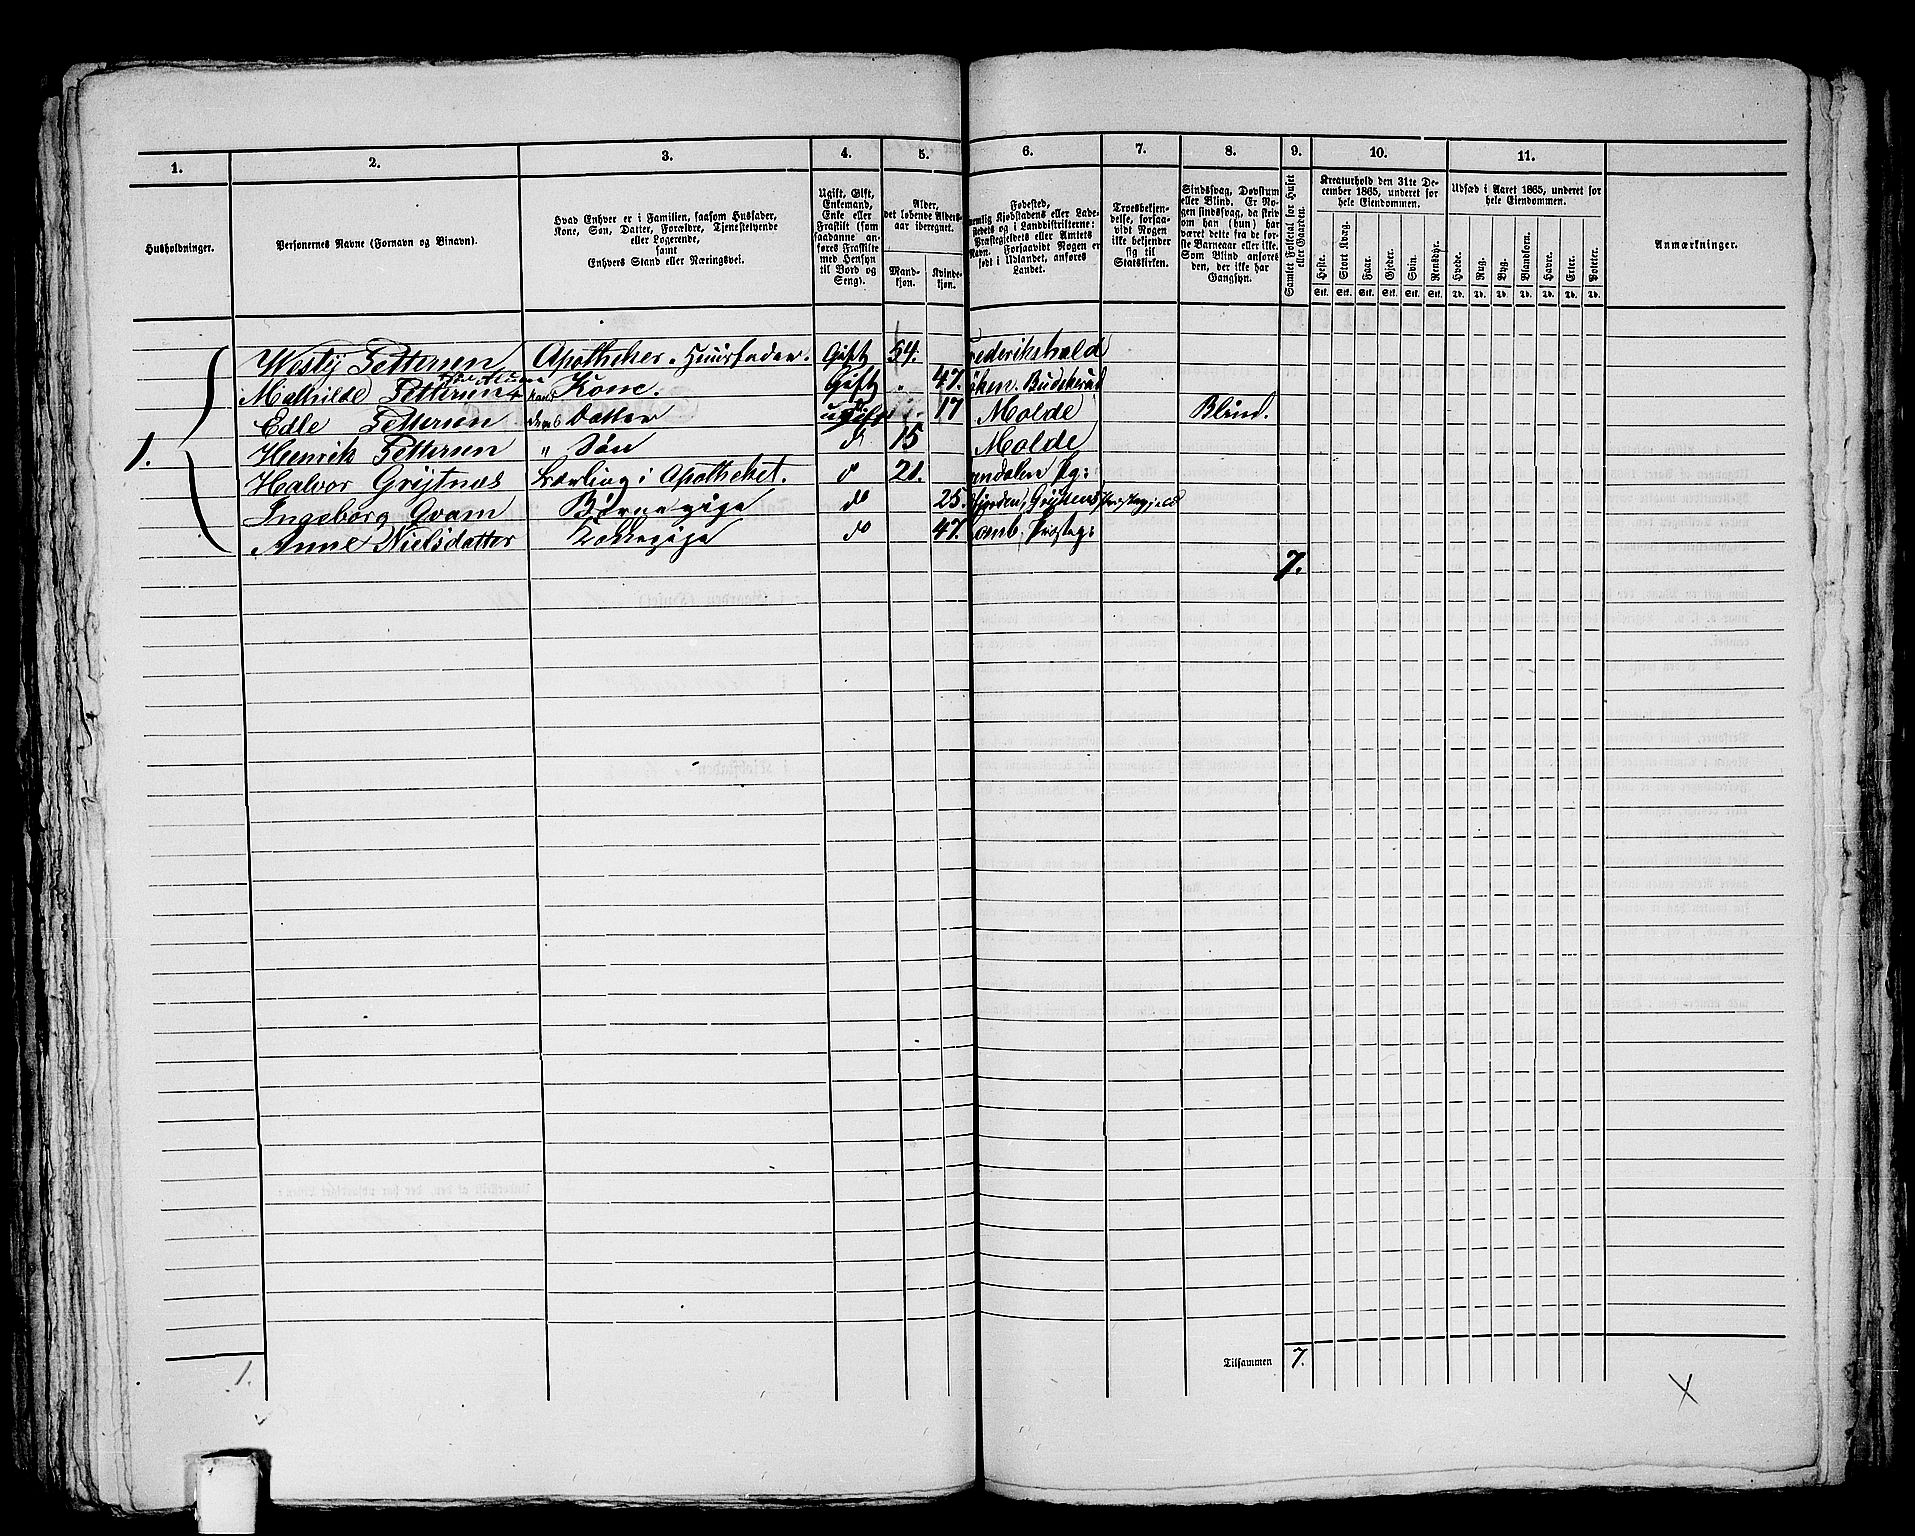 1. 2. 3. 4. 5. 6. 7. 8. 9. 10. 11.
Husholdninger.
Personernes Navne (Fornavn og Binavn).
Hvad Enhver er i Familien, saasom Husfader,
Kone, Søn, Datter, Forældre, Tjenestetyende
eller Logerende,
samt
Enhvers Stand eller Næringsvei.
Ugift, Gift,
Enkemand,
Enke eller
Fraskilt (som
saadanne an-
føres Fraskilte
med Hensyn
til Bord og
Seng).
Alder,
det løbende Alders-
aar iberegnet.
Mand-
kjøn.
Kvinde-
kjøn.
Fødested,
nemlig Kjøbstadens eller Lade-
stedets og i Landdistrikterne:
Præstegjeldets eller Amtets
Navn. Forsaavidt Nogen er
født i Udlandet, anføres
Landet.
Troesbekjen-
delse, forsaa-
vidt Nogen
ikke bekjender
sig til
Statskirken.
Sindssvag, Døvstum
eller Blind. Er No-
gen sindssvag, da skriv
om han (hun) har
været dette fra de før-
ste Barneaar eller ikke.
Som Blind anføres
den, der ikke har
Gangsyn.
Samlet Folketal for Huset
eller Gaarden.
Kreaturhold den 31te De-
cember 1865, underet for
hele Eiendommen.
Heste. Stort Kvæg. Faar. Gjeder. Svin. Rensdyr.
Stk. Stk. Stk. Stk. Stk. Stk.
Udsæd i Aaret 1865, underet for
hele Eiendommen.
Hvede. Rug. Byg. Blandkorn. Havre. Erter. Poteter.
Td. Td. Td. Td. Td. Td. Td.
Anmærkninger.
Westy Pettersen Apotheker. Huusfader. Gift 54. rederikshald
Mathilde Pettersen hans Kone. Gift " 47. öken. Budskerud
Edle Pettersen deres Datter ugift 17 Molde Blind.
1. Henrik Pettersen " Søn do 15 Molde
Halvor Grÿtnæs Lærling i Apotheket. do 21. Pg:
Ingeborg Qvam Barnepige do 25. Præstegjeld
Anne Nielsdatter Kokkepige do 47. Præsteg:
7.
Tilsammen 7.
1.
X